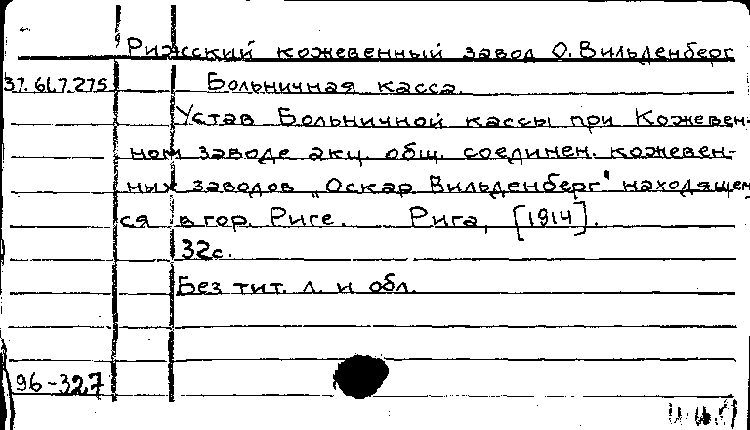 Рижсский кожевенный завод О. Вильденберг
37.61.7.275 Больничная касса.
Устав Больничной кассы при Кожевен-
ном заводе акц. общ. соединен. кожевен-
ных заводов „Оскар Вильденберг" находящем
ся в гор. Риге. Рига, [1914].
32с.
Без тит. л. и обл.
96-327